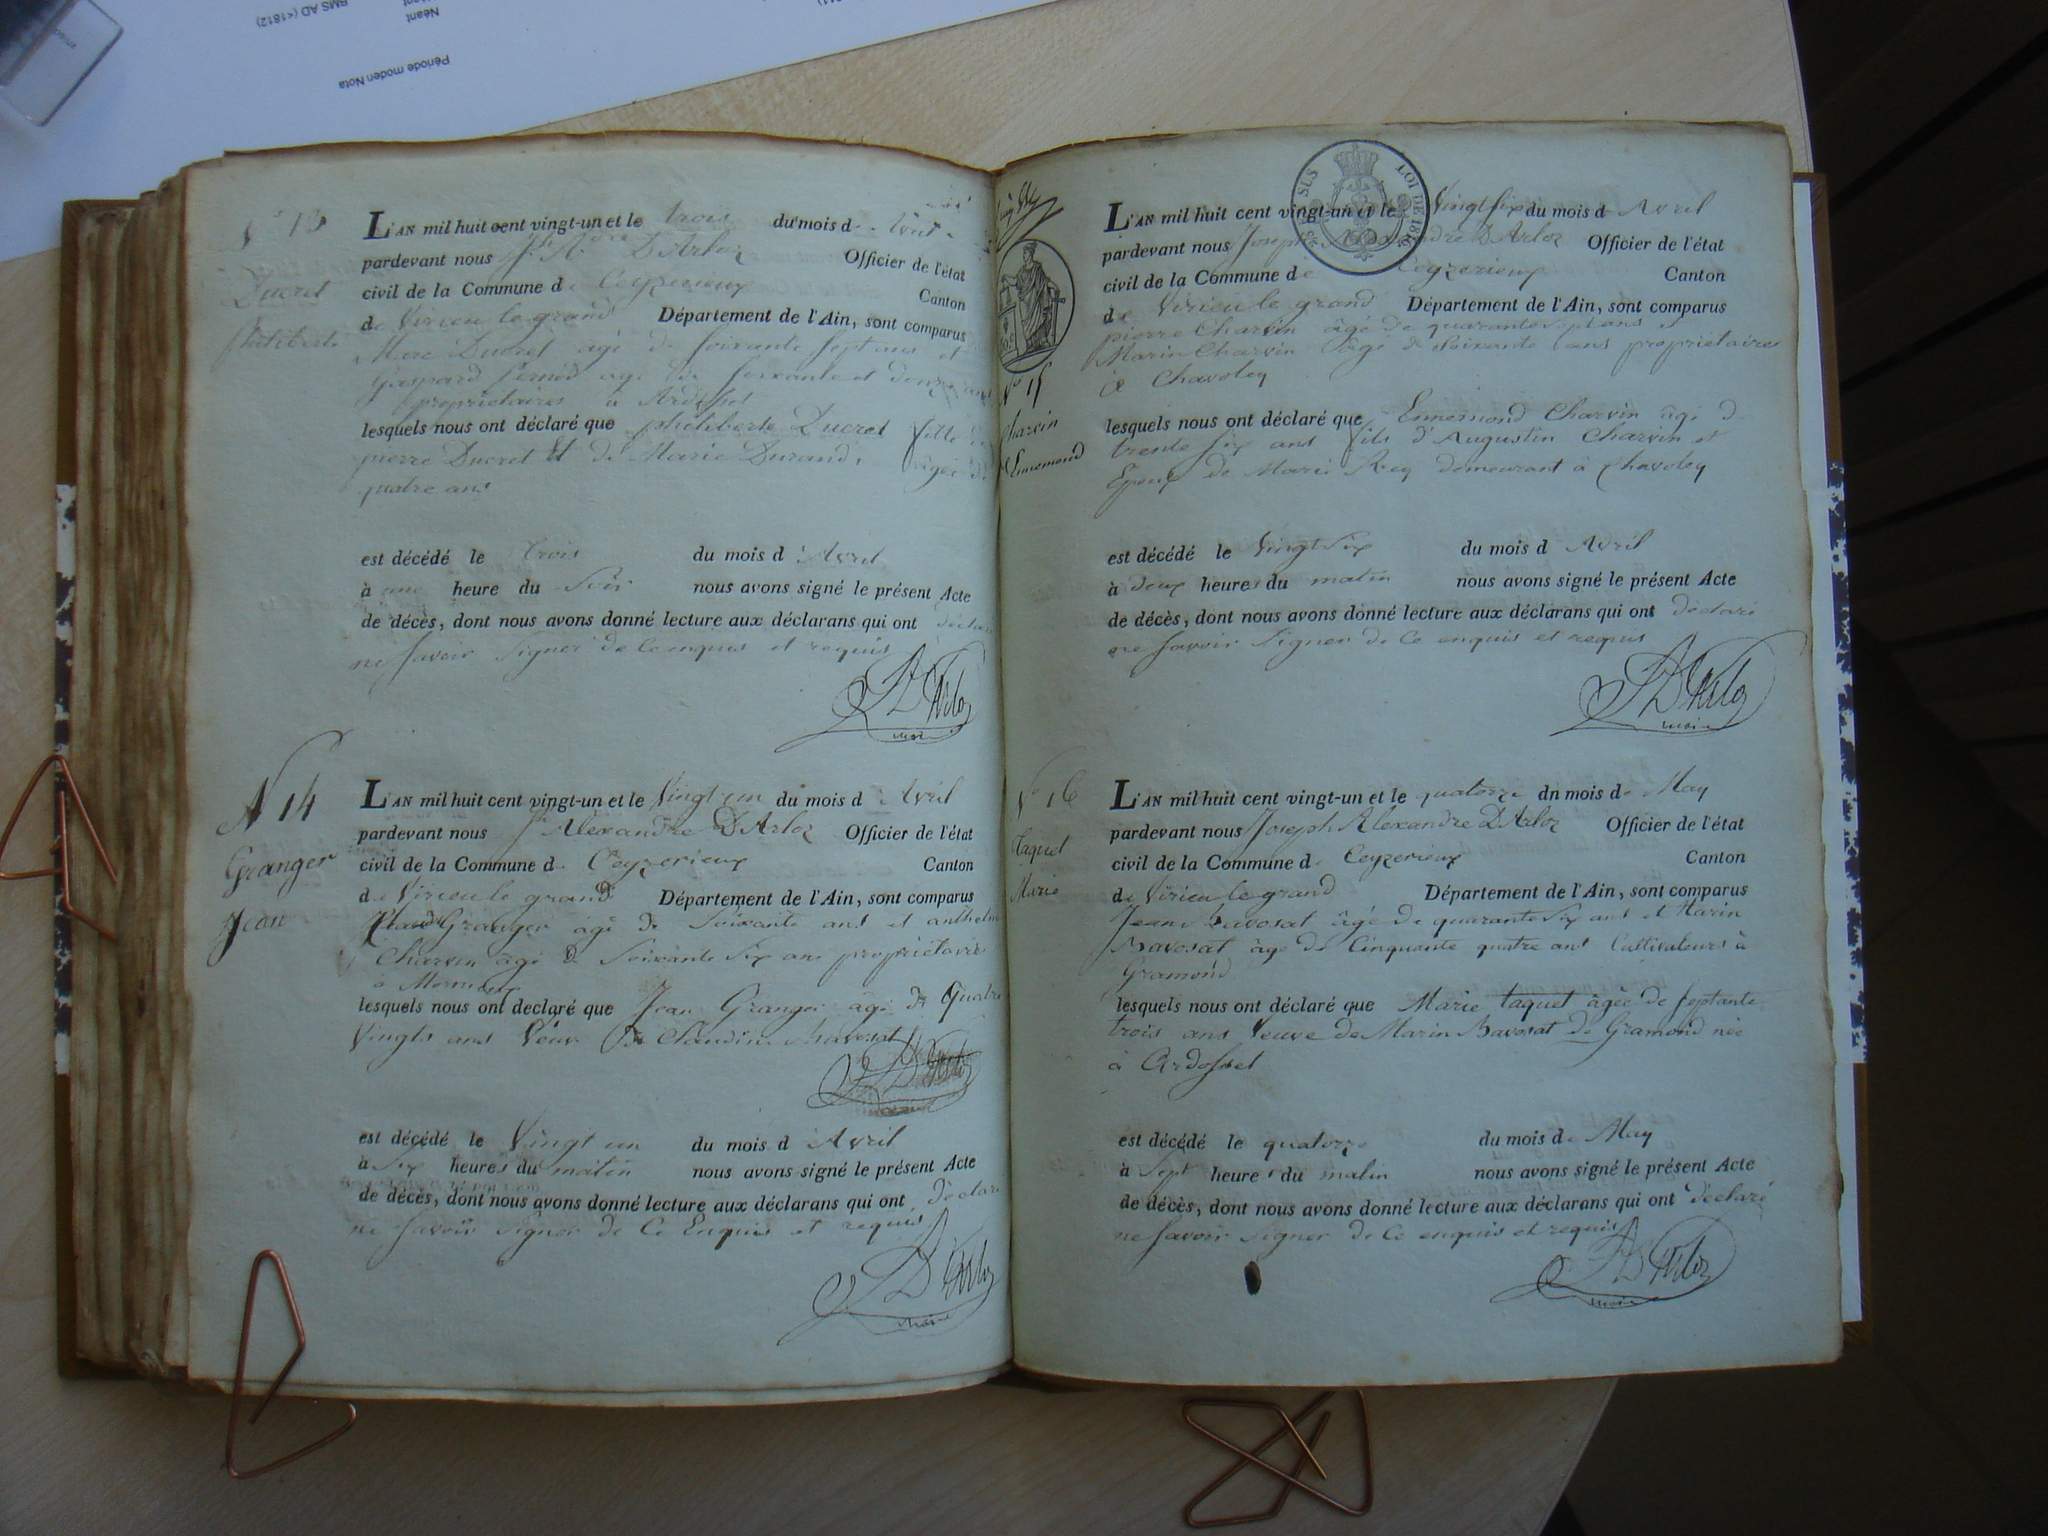 RMS AD (<1812)
Néant
Période moden Nota
13
Ducret
philiberte
L'AN mil huit cent vingt-un et le trois du mois d Avril
pardevant nous Jh. Adre D'Arloz Officier de l'état
civil de la Commune de Ceyzerieux Canton
de Virieu le grand Département de l'Ain, sont comparus
Marc Ducret agé de soixante sept ans et
Gaspard agé de soixante et douze ans
propriétaires à Ardosset
lesquels nous ont déclaré que philiberte Ducret fille de
pierre Ducret et de Marie Durand, agée de
quatre ans
est décédé le trois du mois d'Avril
à une heure du soir nous avons signé le présent Acte
de décès, dont nous avons donné lecture aux déclarans qui ont déclaré
ne savoir signer de ce enquis et requis
D'Arloz
maire
N° 14
Granger
Jean
L'AN mil huit cent vingt-un et le Vingt un du mois d'Avril
pardevant nous Jh Alexandre D'Arloz Officier de l'état
civil de la Commune de Ceyzerieux Canton
de Virieu le grand Département de l'Ain, sont comparus
Granger agé de soixante ans et anthelme
Charvin âgé de soixante six ans propriétaires
à
lesquels nous ont declaré que Jean Granger agé de Quatre
Vingts ans Veuf de Claudine Bavosat
D'Arloz
est décédé le Vingt un du mois d'Avril
à Six heures du matin nous avons signé le présent Acte
de décès, dont nous avons donné lecture aux déclarans qui ont déclaré
ne savoir signer de Ce Enquis et requis
D'Arloz
maire
SUS LOI DE 1816
N° 15
Charvin
Ennemond
L'AN mil huit cent vingt-un et le Vingt six du mois d Avril
pardevant nous Joseph Alexandre D'Arloz Officier de l'état
civil de la Commune de Ceyzerieux Canton
de Virieu le grand Département de l'Ain, sont comparus
pierre Charvin âgé de quarante sept ans et
Marin Charvin âgé de soixante ans propriétaires
à Chavoley
lesquels nous ont déclaré que Ennemond Charvin âgé de
trente six ans fils d'Augustin Charvin et
Epoux de Marie Rey demeurant à Chavoley
est décédé le Vingt six du mois d Avril
à deux heures du matin nous avons signé le présent Acte
de décès, dont nous avons donné lecture aux déclarans qui ont déclaré
ne savoir signer de Ce enquis et requis
D'Arloz
maire
N° 16
Taquet
Marie
L'AN mil huit cent vingt-un et le quatorze du mois de May
pardevant nous Joseph Alexandre D'Arloz Officier de l'état
civil de la Commune de Ceyzerieux Canton
de Virieu le grand Département de l'Ain, sont comparus
Jean Bavosat âgé de quarante six ans et Marin
Bavosat âgé de Cinquante quatre ans Cultivateurs à
Gramond
lesquels nous ont déclaré que Marie taquet âgée de septante
trois ans Veuve de Marin Bavosat de Gramond née
à Ardosset
est décédé le quatorze du mois de May
à Sept heures du matin nous avons signé le présent Acte
de décès, dont nous avons donné lecture aux déclarans qui ont déclaré
ne savoir signer de Ce enquis et requis
D'Arloz
maire